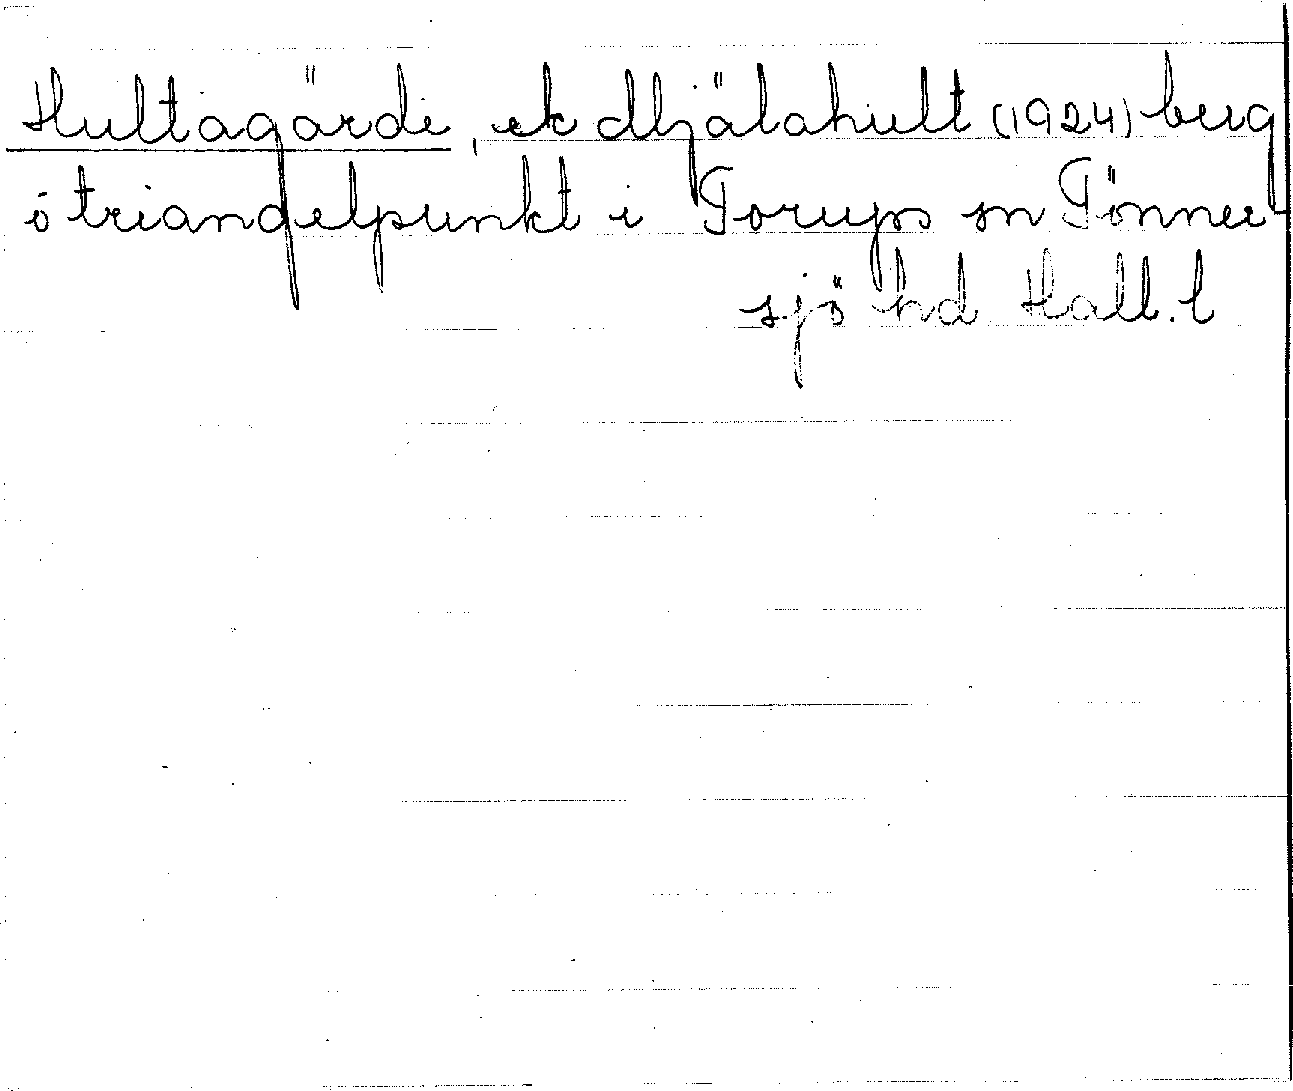 Hultagärde, ek Mjälahult (1924) berg
o triangelpunkt i Torups sn Tönner-
sjö hd Hall. l